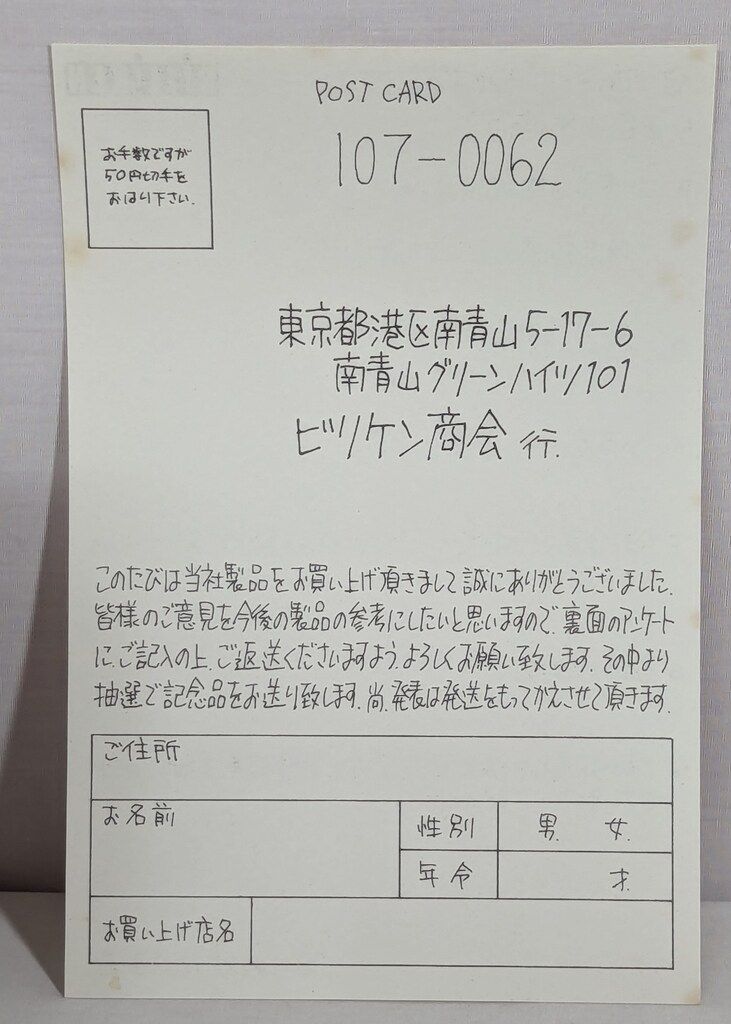 POST CARD
お手数ですが
50円切手を
おはり下さい.
107-0062
東京都港区南青山5-17-6
南青山グリーンハイツ101
ビリケン商会 行.
このたびは当社製品をお買い上げ頂きまして誠にありがとうございました.
皆様のご意見を今後の製品の参考にしたいと思いますので.裏面のアンケート
に.ご記入の上.ご返送くださいますよう.よろしくお願い致します.その中より
抽選で記念品をお送り致します.尚.発表は発送をもってかえさせて頂きます.
ご住所
お名前
性別
男. 女.
年令
才.
お買い上げ店名